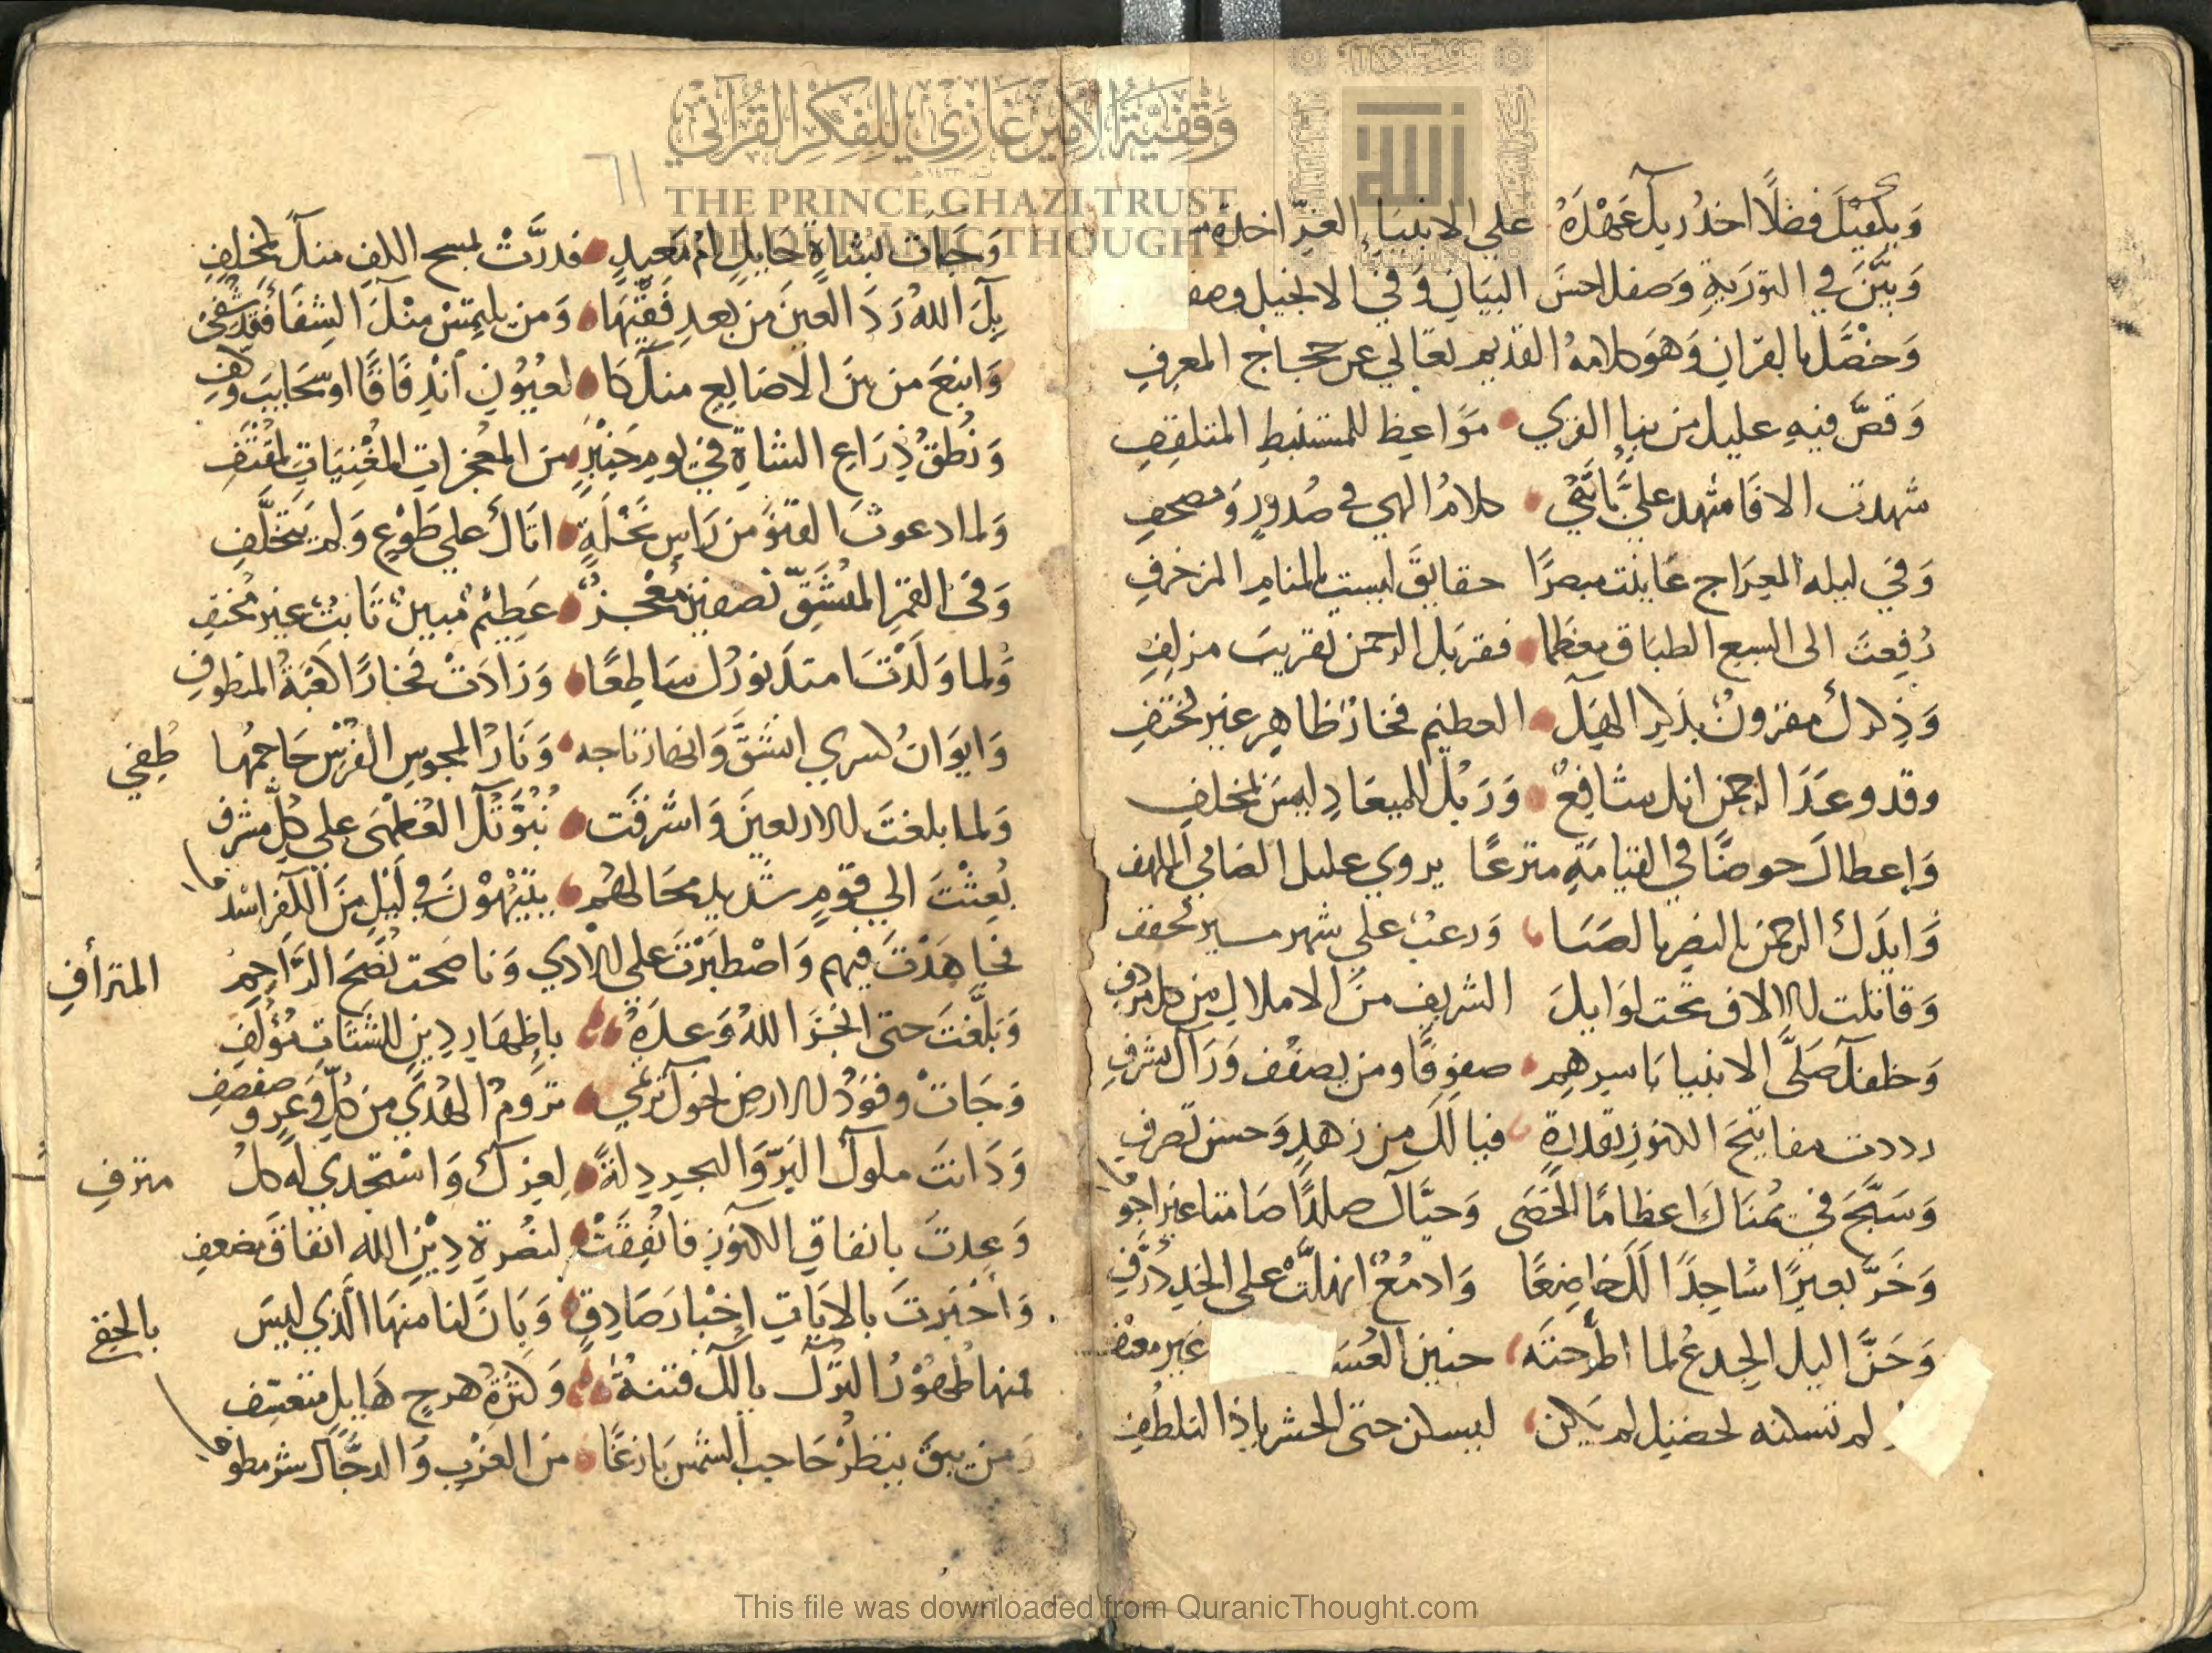 وَقْفِيَّةُ الأَمِيرِ غَازِي لِلْفِكْرِ القُرْآنِي
THE PRINCE GHAZI TRUST
FOR QUR'ANIC THOUGHT
وَيكفيكَ فضلًا اخذ ربك عَهْدَهُ على الانبياءِ الغرِّ اخذة
وَبَيَّنَ في التورَيةِ وَصفك احسنَ البيَانِ وَفي الانجيل وصف
وَخصَّك بالقرانِ وَهوَ كلامهُ القديم تعَالي عن حجاج المعرفِ
وَقصَّ فيهِ عليك من نباءِ القري مَوَاعِظ للمستنبطِ المتلقفِ
شهدت الا فاشهد عليَّ بانَّني كلامُ الهي في صُدورٍ وَمصحفِ
وَفي ليله المعرَاج عَاينت مبصرًا حقايقَ ليست بالمنامِ المزخرفِ
رُفِعتَ الى السبع الطباق معظما فقربك الرحمن تقريبَ مزلفِ
وَذِكرك مقرونٌ بذكرِ الهك العظيم فخارٌ ظاهِر غير مختفِ
وقد وعَدَ الرحمن انك شافِعٌ وَرَبُّك للميعَادِ ليسَ بمخلفِ
وَاعطاكَ حوضًا في القيامَةِ مترعًا يروي عليل الصَادي المتلهف
وَايدَك الرحمن بالنصرِ بالصَبَا وَرعبٌ علي شهر مسير محفف
وَقاتلت الالاف تحت لوايكَ الشريف منَ الاملاك من كل مردفِ
وَخلفكَ صَلَّى الانبيا باسرهِم صفوفًا ومن يصفف وَرَاك يشرفِ
رددت مفاتيحَ الكنوزِ بقدرةٍ فيالك من زهدٍ وَحسن تصرفِ
وَسَبَّحَ في يُمنَاكَ اعظامًا الحَصَى وَحيَّاك صلدًا صَامتا غير اجوفا
وَخَرَّ بعيرٌ ساجِدًا لكَ خاضِعًا وَادمُعٌ انهلَّتْ على الخدِ ذُرَّفِ
وَحَنَّ اليك الجِدعُ لما اطرحتَه حنين العُشَ غير معنف
لم تسكنه لحضنِك لم يكن ليسكن حتى الحشر ياذا التلطُفِ
٦١
وَجَات بشاةٍ حَايلٍ امُ مَعبدٍ فدرَّتْ بمسح الكفِ منكَ لمخلفِ
بِكَ اللهُ رَدَ العينَ من بعدِ فَقْئِهَا وَمن يلتمسْ مِنْكَ الشِفَا فقد شُفِيْ
وَانبَعَ من بَينَ الاصَابِعِ منكَ مَا لعُيُونٍ اندِفَاقًا او سَحَايبَ وُكَّفِ
وَنُطقُ ذِرَاعِ الشاةِ في يومِ خَيْبَرٍ منَ المعُجزاتِ المغْنِيَاتِ لمقْتَفِ
وَلما دعوتَ القنوَ من رَاسِ نخْلَةٍ اتَاكَ علي طَوْعٍ وَلم يَتخَلَّفِ
وَفي القمرِ المنشَقِّ نصفينِ مُعْجزٌ عَظِيمٌ مُبينٌ ثابتٌ غير مُختفِ
وَلما وَلَدْتَ امتدَ نورُك سَاطِعًا وَزَادَتْ فخارًا كعْبَةُ المتطوفِ
وَايوَانُ كسري انشَقَّ وَانحاز تاجه وَنَارُ المجوسِ الفُرْسِ حَاحمهُا طُفِي
وَلما بلغتَ الاربعينَ وَاشرَقَت نُبُوَّتُكَ العُظْمَى على كُلِ مشرف
بُعِثْتَ الي قومٍ شديد محَالهُم يَتيهُوْنَ في لَيْلٍ مِنَ الكُفرِ اسْدفا
فجاهَدْتَ فيهم وَاصْطبَرْتَ على الاذي وَناصَحت نُصْحَ الرَّاحِمِ المترأفِ
وَبَلَّغتَ حتى انجزَ اللهُ وَعدَهُ بإِظهَارِ دِينٍ للشَتَاتِ مُؤلّفِ
وَجَاتْ وفوَدُ الارضِ نحوَك ترتمي ترومُ الهُدَي من كُلِّ وَعرٍ وَصفصفِ
وَدَانت ملوكَ البَرّ وَالبحرِ ذِلةً لِعِزك وَاسْتجدي له كلُ مترفِ
وَعِدتَ بانفاقِ الكنوزِ فانُفِقَتْ لنصُرةِ دِيْنِ الله انفاقَ مضعفِ
وَاخْبَرتَ بالايَاتِ اخْبار صَادِقٍ وَبَانَ لنا منهَا الَّذي ليسَ بالخفِي
فمنها ظهُوْرُ التركِ يالكَ فتنةٌ وَكثرَةُ هرجٍ هَايلٍ متعسّف
وَمن يبقَ ينظُرْ حَاجبَ الشمسِ بَازغًا منَ الغَرْبِ وَالدجَّالَ شر مطوفا
This file was downloaded from QuranicThought.com